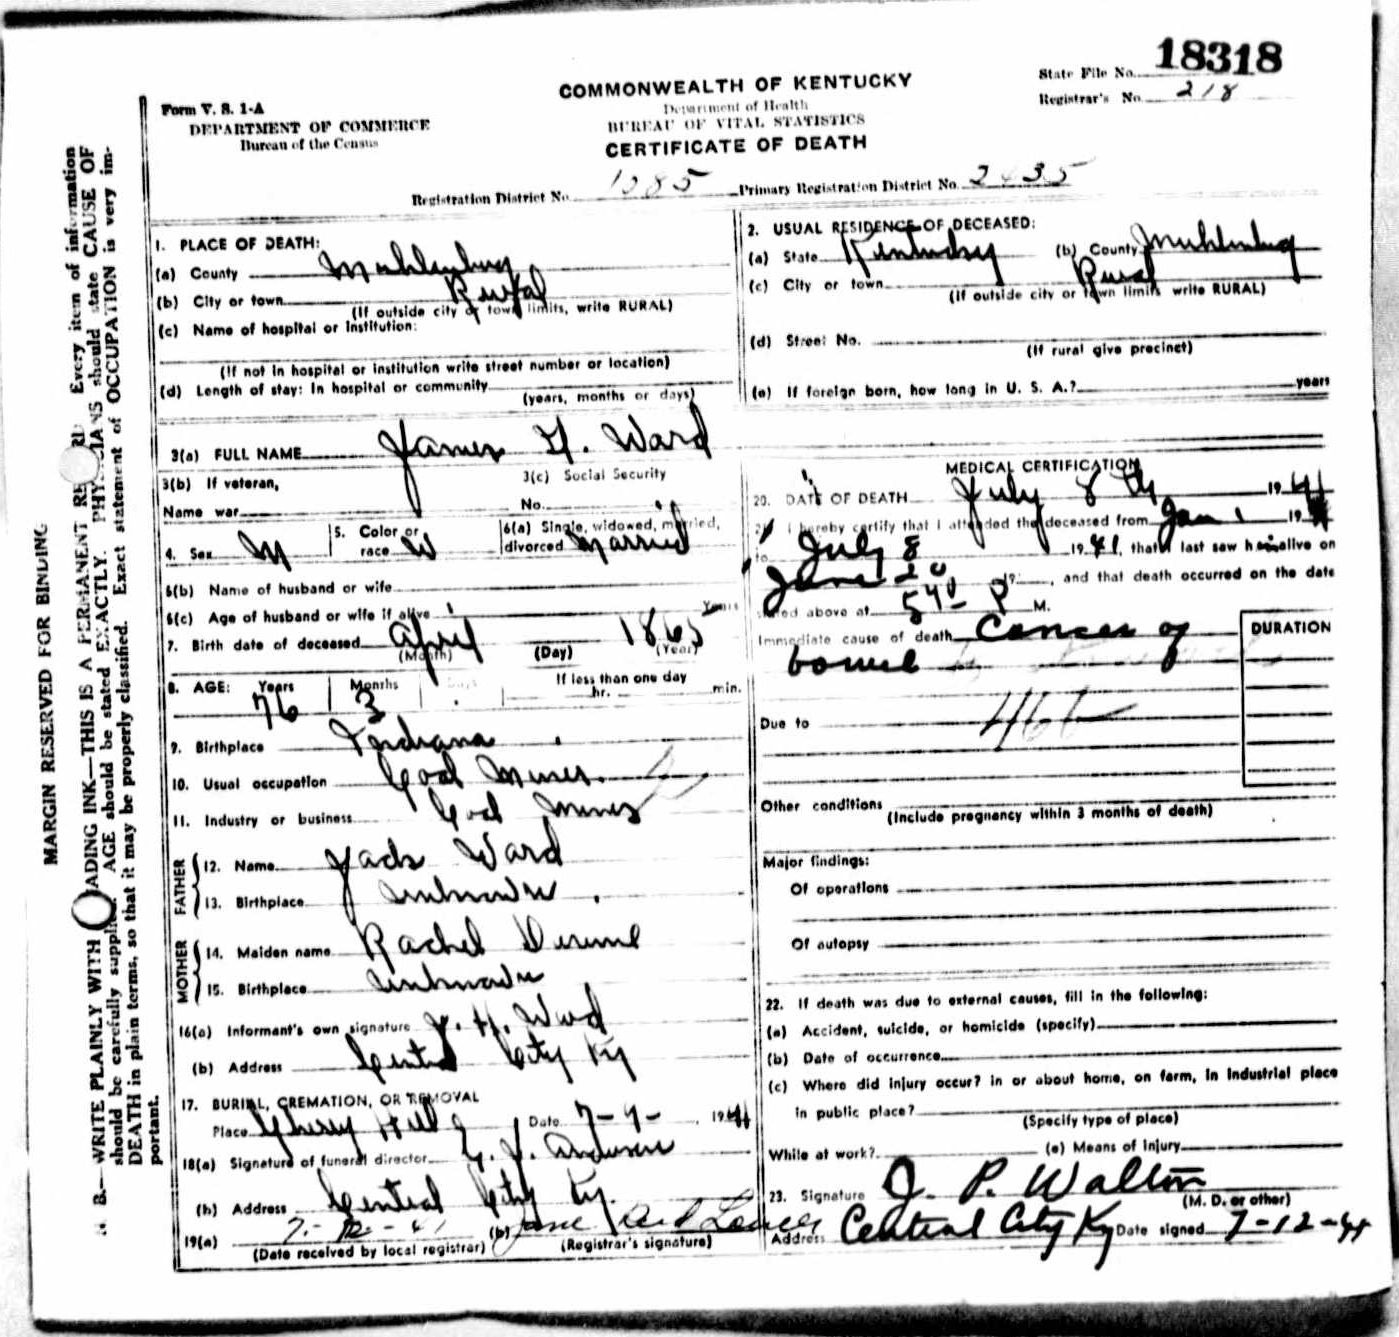 18318
State File No.
Registrar's No. 218
Form V. S. 1-A
DEPARTMENT OF COMMERCE
Bureau of the Census
COMMONWEALTH OF KENTUCKY
Department of Health
BUREAU OF VITAL STATISTICS
CERTIFICATE OF DEATH
Registration District No. 1085 Primary Registration District No. 2435
MARGIN RESERVED FOR BINDING
N. B.—WRITE PLAINLY WITH ADING INK—THIS IS A PERMANENT RE RD Every item of information
should be carefully supplied. AGE should be stated EXACTLY. PHYSICIANS should state CAUSE OF
DEATH in plain terms, so that it may be properly classified. Exact statement of OCCUPATION is very im-
portant.
1. PLACE OF DEATH:
(a) County Muhlenberg
(b) City or town Rural
(If outside city or town limits, write RURAL)
(c) Name of hospital or institution:
(If not in hospital or institution write street number or location)
(d) Length of stay: In hospital or community
(years, months or days)
2. USUAL RESIDENCE OF DECEASED:
(a) State Kentucky (b) County Muhlenberg
(c) City or town Rural
(If outside city or town limits write RURAL)
(d) Street No.
(If rural give precinct)
(e) If foreign born, how long in U. S. A.? years
3(a) FULL NAME James H. Ward
3(b) If veteran, 3(c) Social Security
Name war No.
4. Sex M 5. Color or race W 6(a) Single, widowed, married, divorced Married
6(b) Name of husband or wife
6(c) Age of husband or wife if alive Years
7. Birth date of deceased April 1865
(Month) (Day) (Year)
8. AGE: Years Months Days If less than one day
76 3 hr. min.
9. Birthplace Indiana
10. Usual occupation Coal Miner
11. Industry or business Coal Mines
FATHER
12. Name Jack Ward
13. Birthplace Unknown
MOTHER
14. Maiden name Rachel
15. Birthplace Unknown
16(a) Informant's own signature J. H. Ward
(b) Address Central City Ky
17. BURIAL, CREMATION, OR REMOVAL
Place Cherry Hill Date 7-9- 1941
18(a) Signature of funeral director Anderson
(b) Address Central City Ky.
19(a) 7-12-41 (b) Jane
(Date received by local registrar) (Registrar's signature)
MEDICAL CERTIFICATION
20. DATE OF DEATH July 8th 1941
21. I hereby certify that I attended the deceased from Jan 1 19
to July 8 1941, that I last saw him alive on
June 20 19 , and that death occurred on the date
stated above at 540 P M.
Immediate cause of death Cancer of
bowel
DURATION
Due to
46
Other conditions
(Include pregnancy within 3 months of death)
Major findings:
Of operations
Of autopsy
22. If death was due to external causes, fill in the following:
(a) Accident, suicide, or homicide (specify)
(b) Date of occurrence
(c) Where did injury occur? in or about home, on farm, in industrial place
in public place?
(Specify type of place)
While at work? (e) Means of injury
23. Signature J. P. Walton
(M. D. or other)
Address Central City Ky Date signed 7-12-41